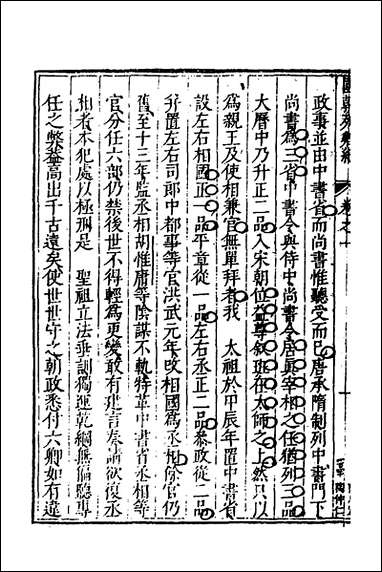 政事並由中書省而尚書惟聽受而已唐承隋制列中書門下
尚書為三省中書令與侍中尚書令居眞宰相之任猶列三品
大曆中乃升正二品入宋朝位益尊叙班在太師之上然只以
為親王及使相兼官無單拜者我　太祖於甲辰年置中書省
設左右相國正一品平章從一品左右丞正二品叅政從二品
并置左右司郎中都事等官洪武元年改相國為丞相餘官仍
舊至十三年監丞相胡惟庸等陰謀不軌特革中書省丞相等
官分任六部仍禁後世不得輕為更變敢有建言奏請欲復丞
相者本犯處以極刑是　聖祖立法垂訓獨運乾綱無偏聽專
任之弊葢高出千古遠矣使世世守之朝政悉付六卿如有違